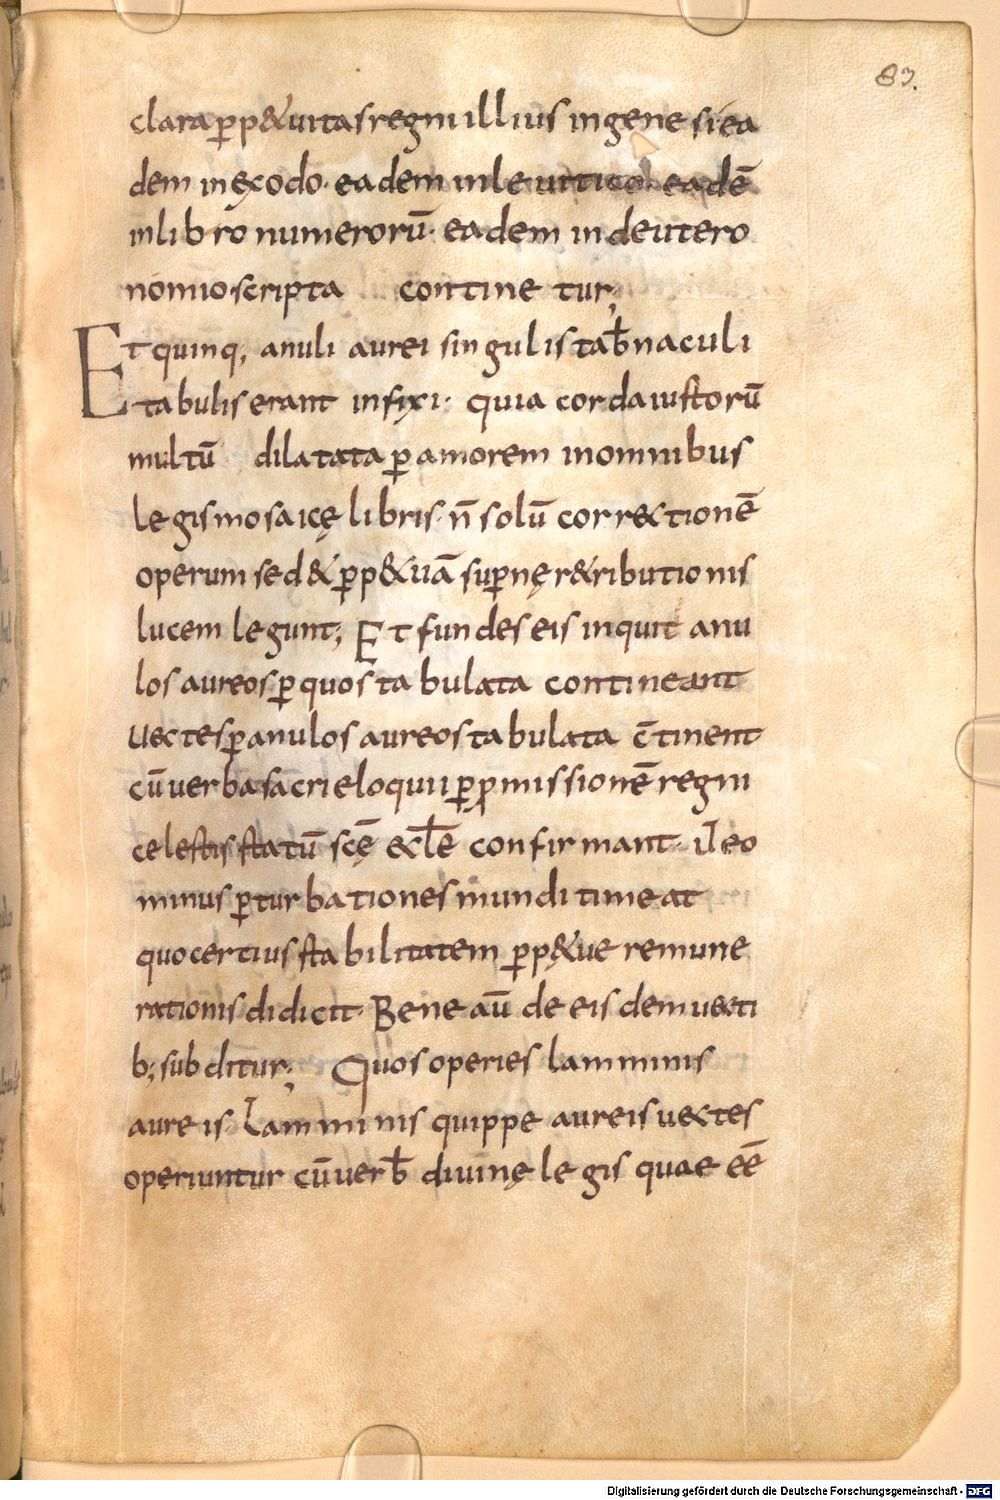 83.
clara p̄p&uitas regni illius in genesi ea
dem in ęxodo· eadem in leuitico· eadē
in libro numerorū· eadem in deutero
nomio scripta continetur;
Et quinq, anuli aurei singulis tab̄naculi
tabulis erant infixi· quia corda iustorū
multū dilatata ꝑ amorem in omnibus
legis mosaicę libris· n̄ solū correctionē
operum sed & ꝑp&uā suꝑnę r&ributionis
lucem legunt; Et fundes eis inquit anu
los aureos ꝑ quos tabulata contineant
Uectes ꝑ anulos aureos tabulata c̄tinent
cū uerba sacri eloquii ꝑ ꝓmissionē regni
celestis statū scę̄ eccłē confirmant· ut eo
minus ꝑturbationes mundi timeat
quo certius stabilitatem ꝑp&ue remune
rationis didicit· Bene aū de eisdem uecti
b; subditur; Quos operies lamminis
aureis· Lamminis quippe aureis uectes
operiuntur cū uerb̄ diuinę legis quae eē
Digitalisierung gefördert durch die Deutsche Forschungsgemeinschaft - DFG